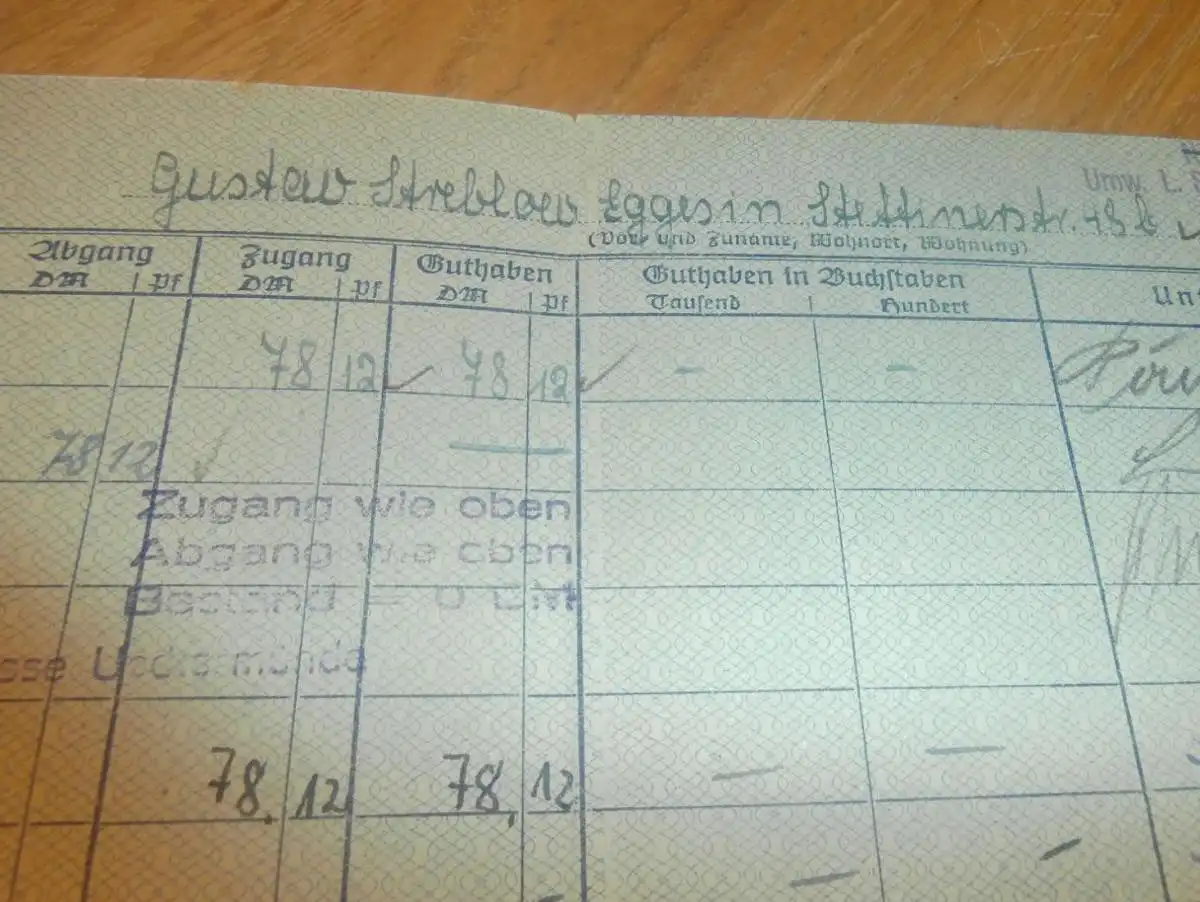 Umw. L.
Gustav Streblow Eggesin Stettinerstr.
(Vor- und Zuname, Wohnort, Wohnung)
Abgang Zugang Guthaben Guthaben in Buchstaben
DM Pf DM Pf DM Pf Tausend Hundert
78 12 78 12 – –
78 12 —
Zugang wie oben
Abgang wie oben
Bestand = 0 DM
Ueckermünde
78. 12 78. 12 — —
— —